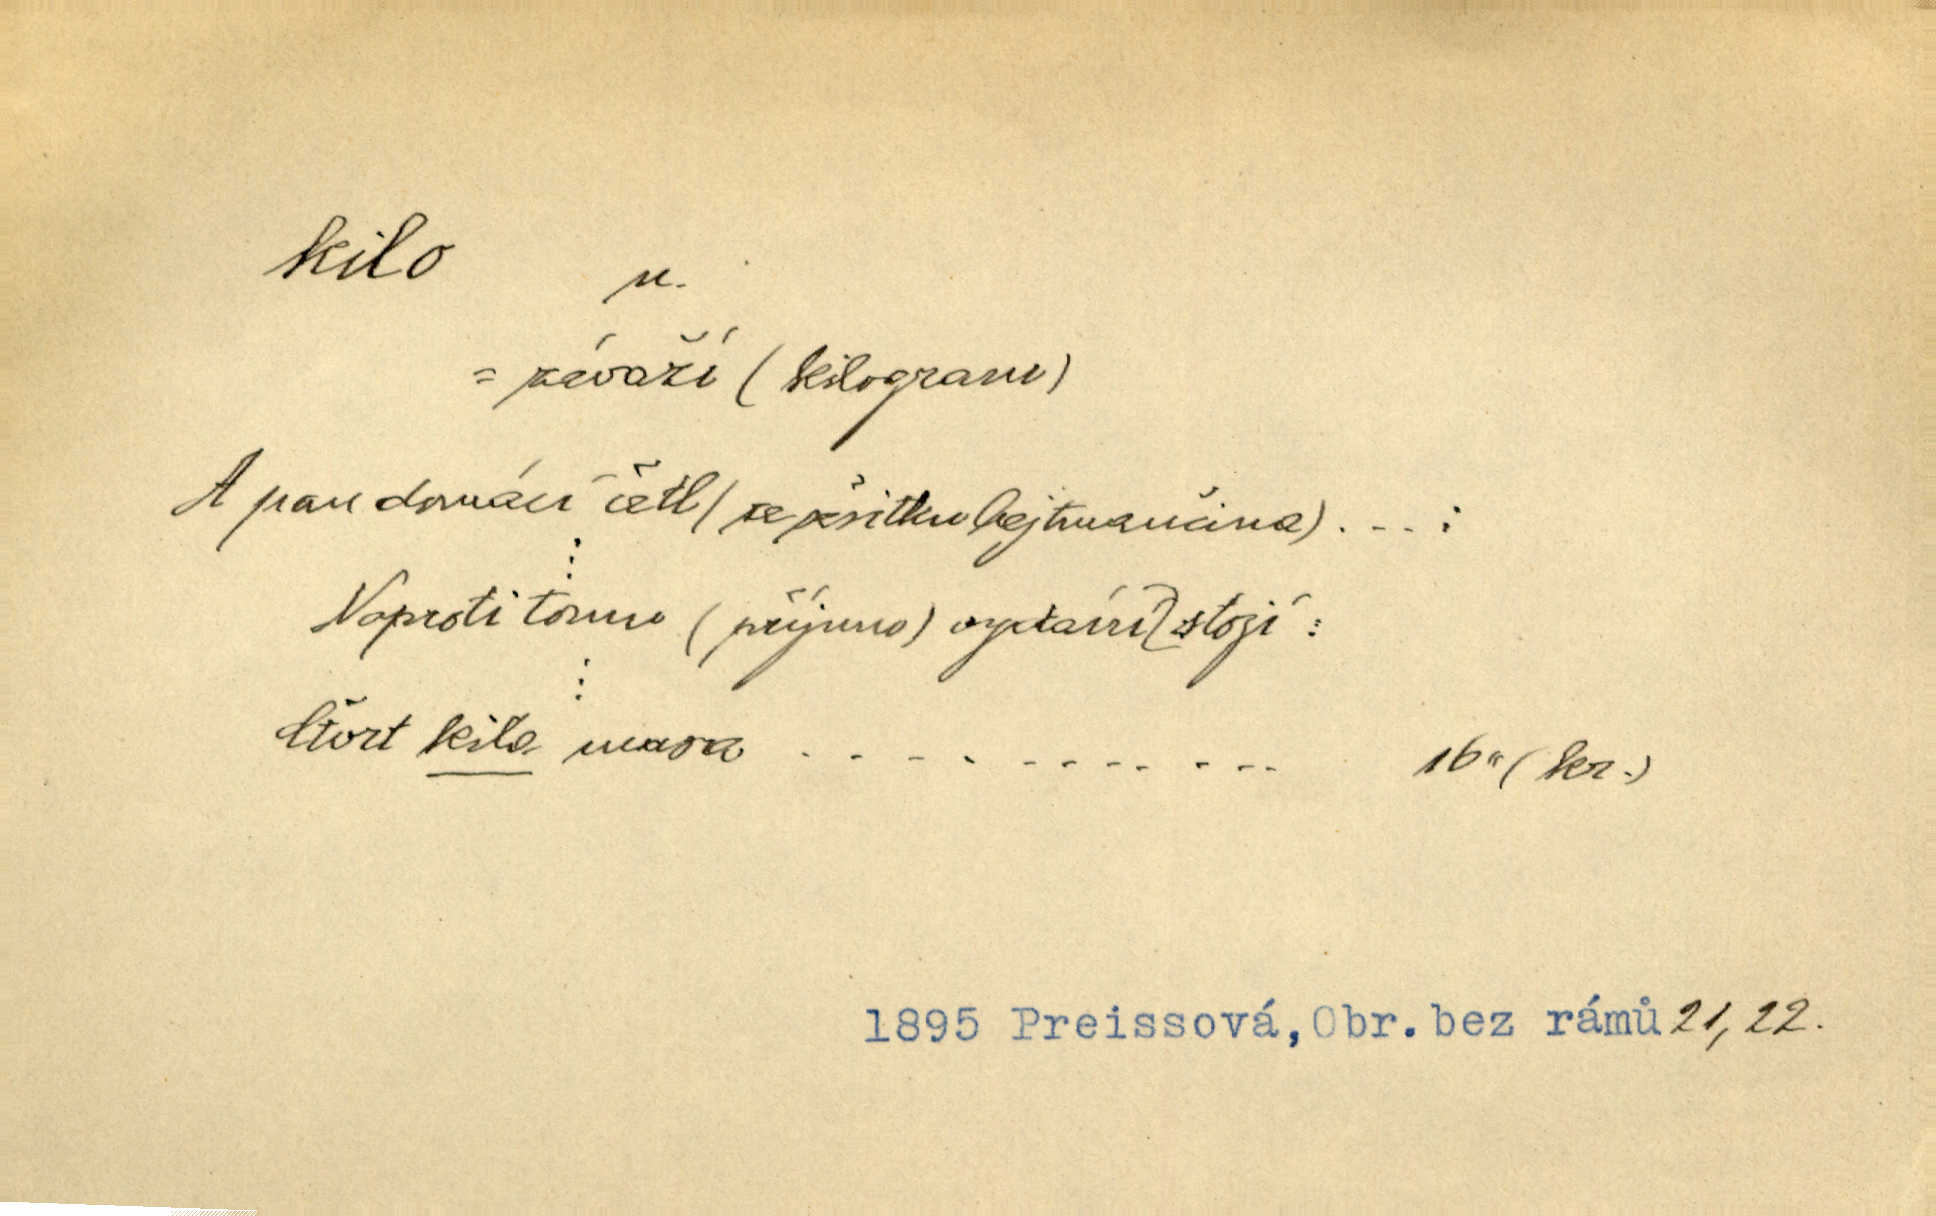 kilo
n.
= závaží (kilogram)
A pan domácí četl (ze sešitku hejtmančina) . - - . :
⋮
Naproti tomu (příjmu) vydání stojí :
⋮
čtvrt kila masa . - - . - - - - . - - 16 " (kr.)
1895 Preissová, Obr. bez rámů 21, 22.